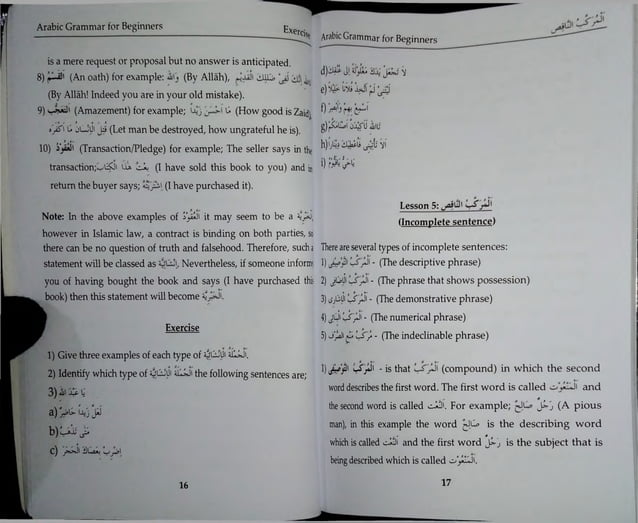 Arabic Grammar for Beginners
Exercise
is a mere request or proposal but no answer is anticipated.
8) اَلْقَسَمُ (An oath) for example: وَاللهِ (By Allāh), تَاللهِ إِنَّكَ لَفِيْ ضَلٰلِكَ الْقَدِيْمِ
(By Allāh! Indeed you are in your old mistake).
9) اَلتَّعَجُّبُ (Amazement) for example; مَا أَحْسَنَ زَيْدًا (How good is Zaid),
قُتِلَ الْإِنْسَانُ مَا أَكْفَرَهُ (Let man be destroyed, how ungrateful he is).
10) اَلْعُقُوْدُ (Transaction/Pledge) for example; The seller says in the
transaction; بِعْتُ هٰذَا الْكِتَابَ (I have sold this book to you) and in
return the buyer says; اِشْتَرَيْتُهُ (I have purchased it).
Note: In the above examples of اَلْعُقُوْدُ it may seem to be a خَبَرِيَّةٌ,
however in Islamic law, a contract is binding on both parties, so
there can be no question of truth and falsehood. Therefore, such a
statement will be classed as إِنْشَائِيَّةٌ. Nevertheless, if someone informs
you of having bought the book and says (I have purchased this
book) then this statement will become اَلْخَبَرِيَّةُ.
Exercise
1) Give three examples of each type of اَلْجُمْلَةُ الْإِنْشَائِيَّةُ.
2) Identify which type of اَلْجُمْلَةُ الْإِنْشَائِيَّةُ the following sentences are;
3) يَا عَبْدَ اللهِ
a) لَعَلَّ زَيْدًا حَاضِرٌ
b) مَتٰى تَذْهَبُ
c) اِضْرِبْ بِعَصَاكَ الْحَجَرَ
16
Arabic Grammar for Beginners
اَلْمُرَكَّبُ النَّاقِصُ
d) لَا تَجْعَلْ يَدَكَ مَغْلُوْلَةً إِلٰى عُنُقِكَ
e) لَيْتَنِيْ لَمْ أَتَّخِذْ فُلَانًا خَلِيْلًا
f) أَسْمِعْ بِهِمْ وَأَبْصِرْ
g) تَاللهِ لَأَكِيْدَنَّ أَصْنَامَكُمْ
h) أَلَا تَأْتِيْنِيْ فَأُعْطِيَكَ دِيْنَارًا
i) يَا حَيُّ يَا قَيُّوْمُ
Lesson 5: اَلْمُرَكَّبُ النَّاقِصُ
(Incomplete sentence)
There are several types of incomplete sentences:
1) اَلْمُرَكَّبُ التَّوْصِيْفِيُّ - (The descriptive phrase)
2) اَلْمُرَكَّبُ الْإِضَافِيُّ - (The phrase that shows possession)
3) اَلْمُرَكَّبُ الْإِشَارِيُّ - (The demonstrative phrase)
4) اَلْمُرَكَّبُ الْبِنَائِيُّ - (The numerical phrase)
5) مُرَكَّبُ مَنْعِ الصَّرْفِ - (The indeclinable phrase)
1) اَلْمُرَكَّبُ التَّوْصِيْفِيُّ - is that اَلْمُرَكَّبُ (compound) in which the second
word describes the first word. The first word is called اَلْمَنْعُوْتُ and
the second word is called اَلنَّعْتُ. For example; رَجُلٌ صَالِحٌ (A pious
man), in this example the word صَالِحٌ is the describing word
which is called اَلنَّعْتُ and the first word رَجُلٌ is the subject that is
being described which is called اَلْمَنْعُوْتُ.
17